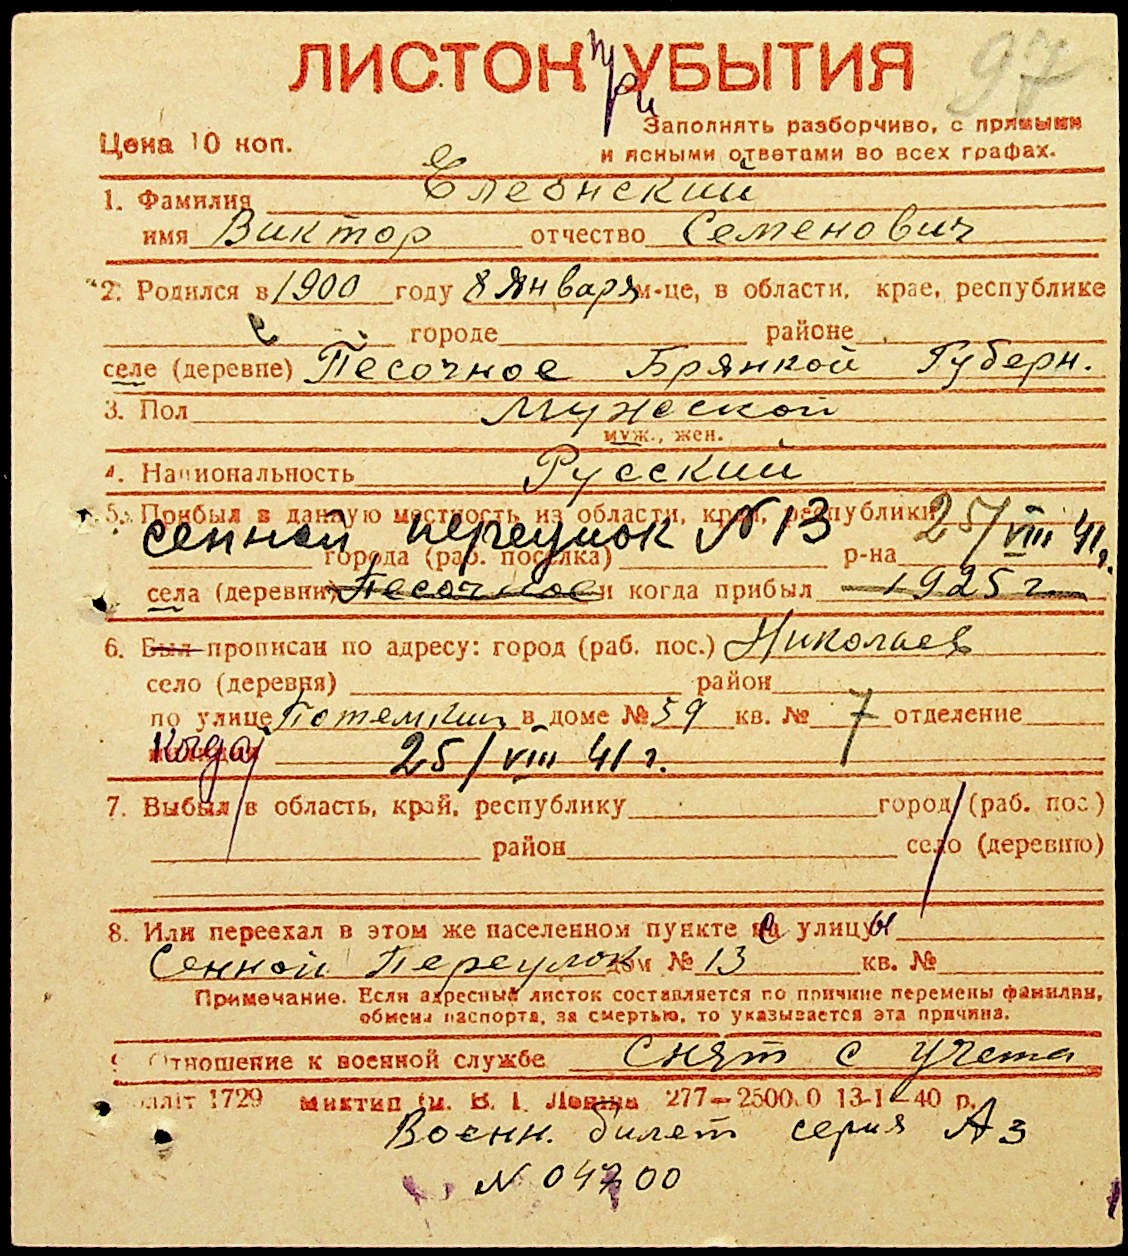 97
ЛИСТОК при УБЫТИЯ
Цена 10 коп.
Заполнять разборчиво, с прямыми
и ясными ответами во всех графах.
1. Фамилия Елеонский
имя Виктор отчество Семенович
2. Родился в 1900 году 8 Января м-це, в области, крае, республике
городе районе
селе (деревне) Песочное Брянкой Губерн.
3. Пол Мужеской
муж., жен.
4. Национальность Русский
5. Прибыл в данную местность из области, края, республики 25/VIII 41 г.
сенной переулок N 13
города (раб. поселка) р-на
села (деревни) Песочное и когда прибыл 1925 г
6. Был прописан по адресу: город (раб. пос.) Николаев
село (деревня) район
по улице Потемкин в доме № 59 кв. № 7 отделение
когда 25/VIII 41 г.
7. Выбыл в область, край, республику город (раб. пос)
район село (деревню)
8. Или переехал в этом же населенном пункте с улицы
Сенной Переулок дом № 13 кв. №
Примечание. Если адресный листок составляется по причине перемены фамилии,
обмена паспорта, за смертью, то указывается эта причина.
9 Отношение к военной службе Снят с учета
літ 1729 им. В. І. Леніна 277—2500.0 13-1—40 р.
Военн. билет серия АЗ
N 04700